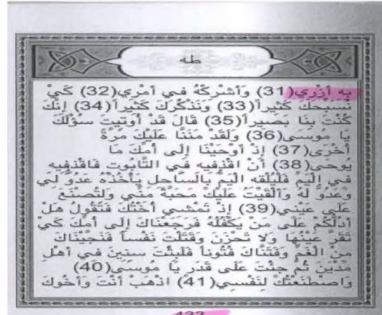 طه
بِهِ أَزْرِي(31) وَأَشْرِكْهُ فِي أَمْرِي(32) كَيْ
نُسَبِّحَكَ كَثِيراً(33) وَنَذْكُرَكَ كَثِيراً(34) إِنَّكَ
كُنْتَ بِنَا بَصِيراً(35) قَالَ قَدْ أُوتِيتَ سُؤْلَكَ
يَا مُوسَى(36) وَلَقَدْ مَنَنَّا عَلَيْكَ مَرَّةً
أُخْرَى(37) إِذْ أَوْحَيْنَا إِلَى أُمِّكَ مَا
يُوحَى(38) أَنْ اقْذِفِيهِ فِي التَّابُوتِ فَاقْذِفِيهِ
فِي الْيَمِّ فَلْيُلْقِهِ الْيَمُّ بِالسَّاحِلِ يَأْخُذْهُ عَدُوٌّ لِي
وَعَدُوٌّ لَهُ وَأَلْقَيْتُ عَلَيْكَ مَحَبَّةً مِنِّي وَلِتُصْنَعَ
عَلَى عَيْنِي(39) إِذْ تَمْشِي أُخْتُكَ فَتَقُولُ هَلْ
أَدُلُّكُمْ عَلَى مَنْ يَكْفُلُهُ فَرَجَعْنَاكَ إِلَى أُمِّكَ كَيْ
تَقَرَّ عَيْنُهَا وَلا تَحْزَنَ وَقَتَلْتَ نَفْساً فَنَجَّيْنَاكَ
مِنْ الْغَمِّ وَفَتَنَّاكَ فُتُوناً فَلَبِثْتَ سِنِينَ فِي أَهْلِ
مَدْيَنَ ثُمَّ جِئْتَ عَلَى قَدَرٍ يَا مُوسَى(40)
وَاصْطَنَعْتُكَ لِنَفْسِي(41) اذْهَبْ أَنْتَ وَأَخُوكَ